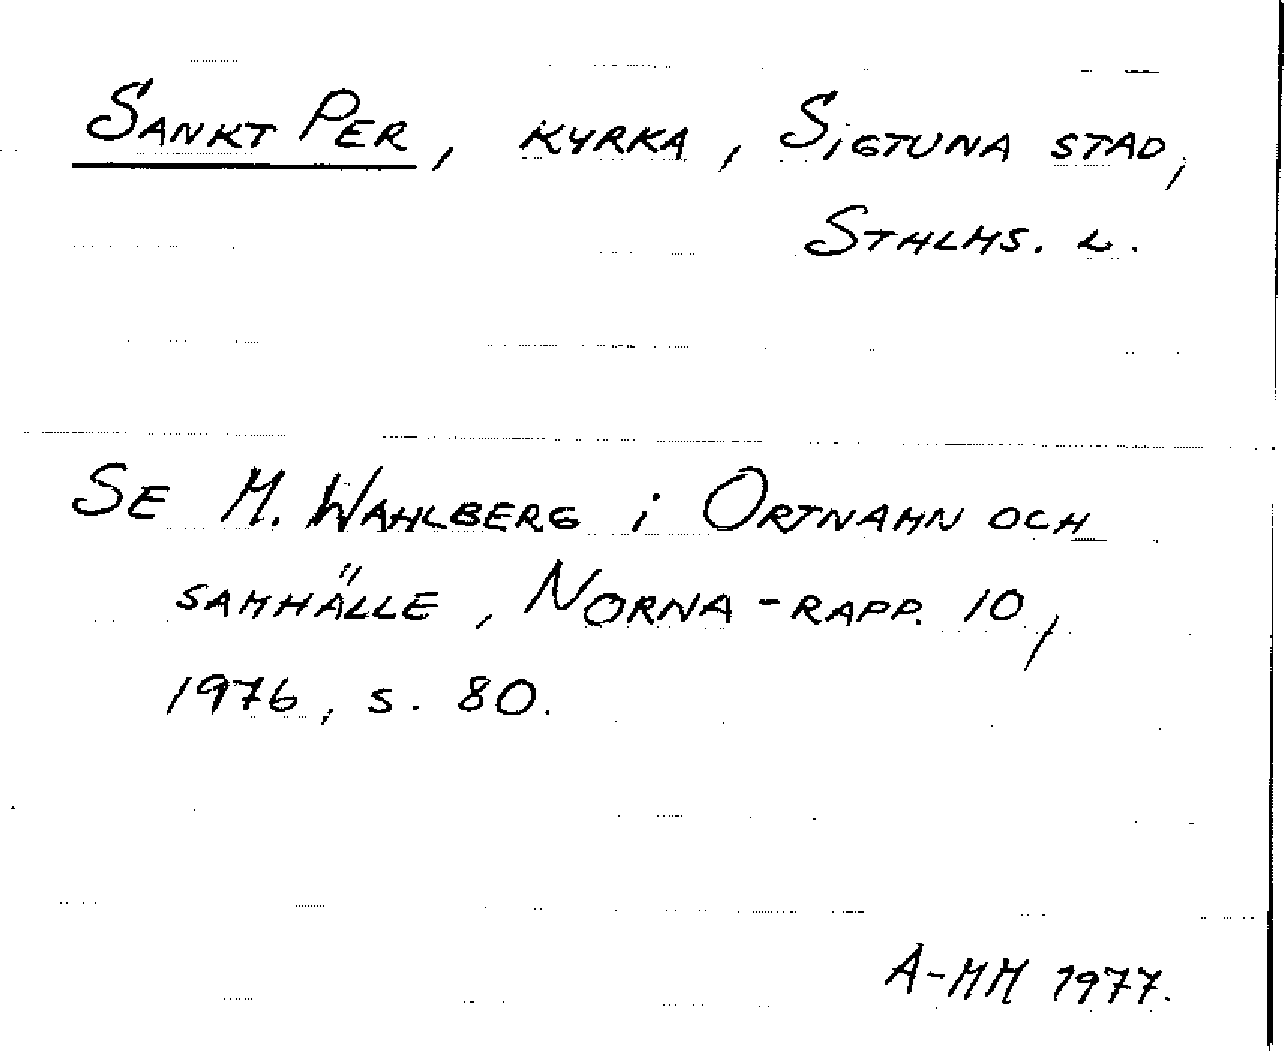 SANKT PER, KYRKA, SIGTUNA STAD,
STHLMS. L.
SE M. WAHLBERG i ORTNAMN OCH
SAMHÄLLE, NORNA-RAPP. 10,
1976, s. 80.
A-MM 1977.